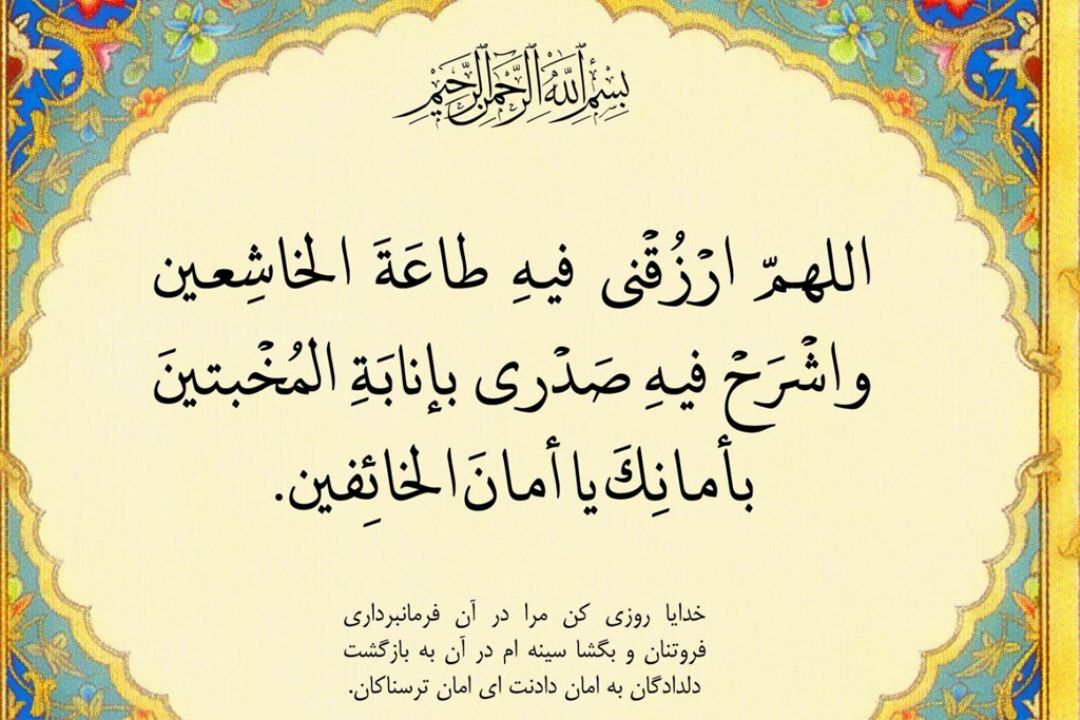 بِسْمِ اللّٰهِ الرَّحْمٰنِ الرَّحِیْمِ
اللهمّ ارْزُقْنی فیهِ طاعَةَ الخاشِعین
واشْرَحْ فیهِ صَدْری بإنابَةِ المُخْبتینَ
بأمانِكَ یا أمانَ الخائِفین.
خدایا روزی کن مرا در آن فرمانبرداری
فروتنان و بگشا سینه ام در آن به بازگشت
دلدادگان به امان دادنت ای امان ترسناکان.